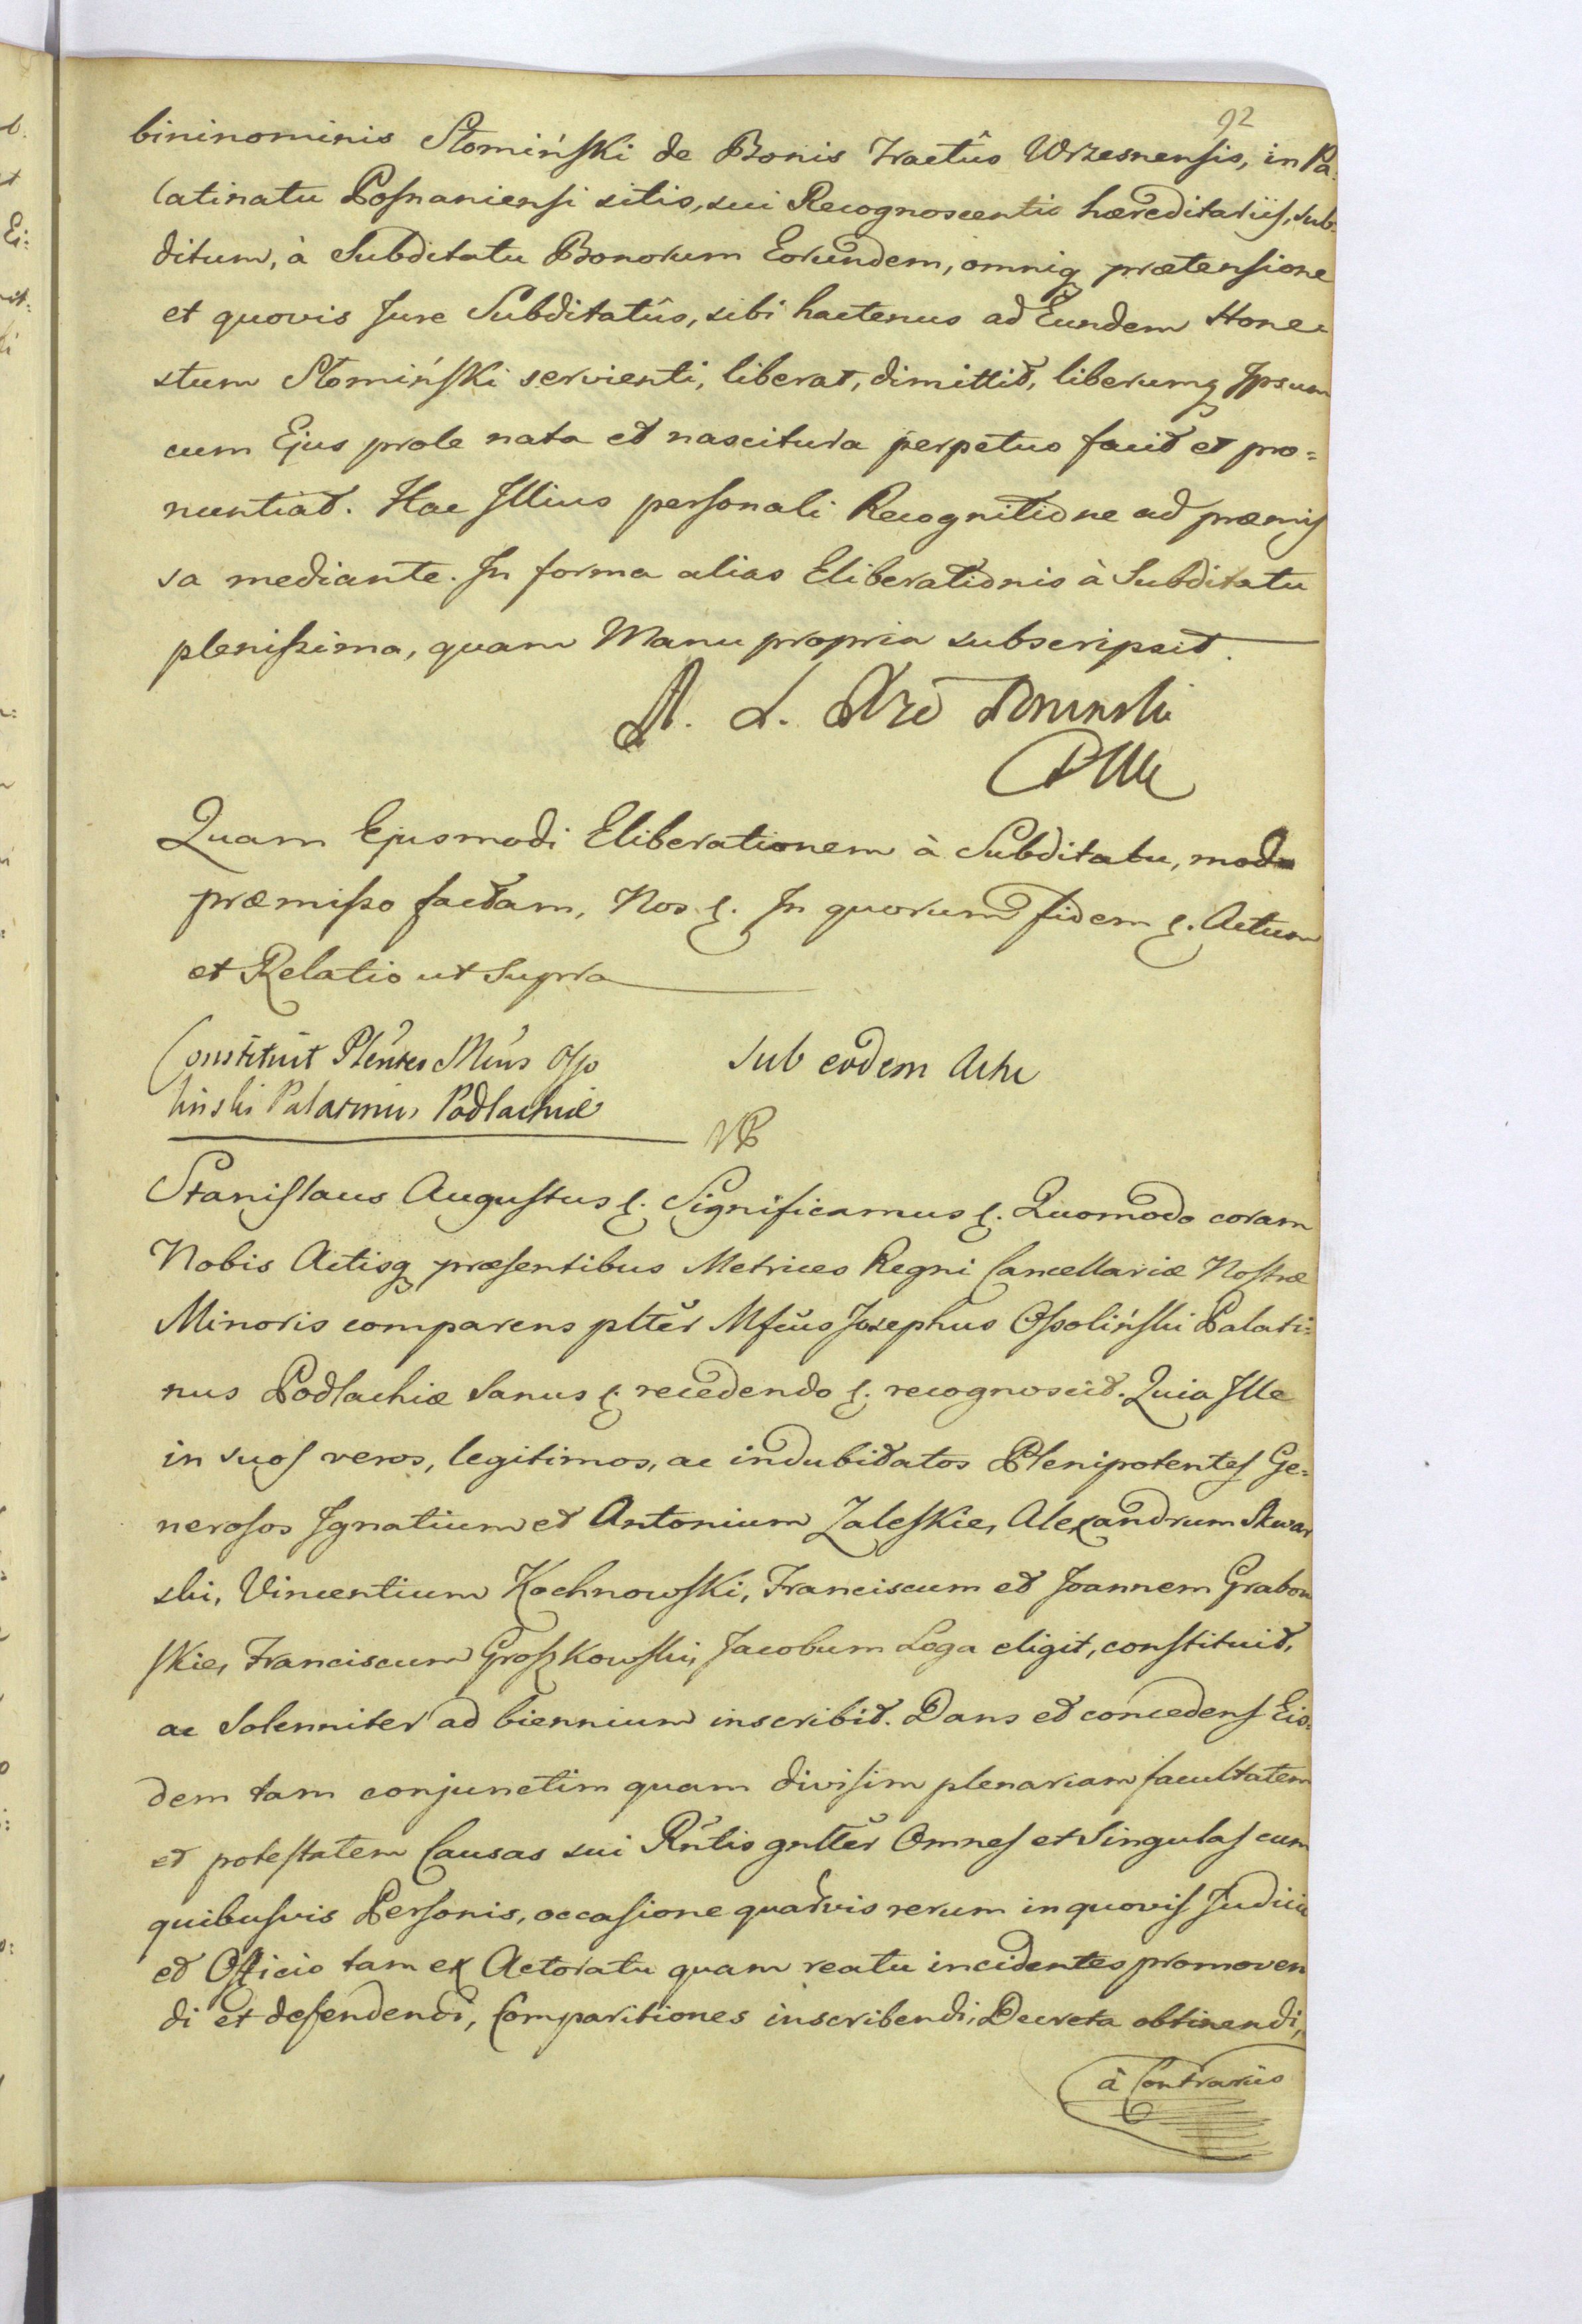 92
bininominis Słomiński de Bonis Tractûs Wrzesnensis, in Pa-
latinatu Posnaniensi sitis, sui Recognoscentis hæreditariis, sub-
ditum, à Subditatu Bonorum Eorundem, omniq prætensione
et quovis Jure Subditatûs, sibi hactenus ad Eundem Hone-
stum Słomiński servienti, liberat, dimittit, liberumq Ipsum
cum Ejus prole nata et nascitura perpetuo facit et pro=
nuntiat. Hac Illius personali Recognitione ad præmis
sa mediante. In forma alias Eliberationis à Subditatu
plenissima, quam Manu propria subscripsit.
A. L.
Quam Ejusmodi Eliberationem à Subditatu, modo
præmisso factam, Nos &. In quorum fidem &. Actum
et Relatio ut Supra
Constituit Plentes Mcus Osso
linski Palatinus Podlachiæ
sub eodem Actu
Stanislaus Augustus &. Significamus &. Quomodo coram
Nobis Actisq præsentibus Metrices Regni Cancellariæ Nostræ
Minoris comparens pltěr Mfcus Josephus Ossoliński Palati=
nus Podlachiæ Sanus &. recedendo &. recognoscit. Quia Ille
in suos veros, legitimos, ac indubitatos Plenipotentes Ge=
nerosos Ignatium et Antonium Zaleskie, Alexandrum Skwar
ski, Vincentium Kochnowski, Franciscum et Joannem Grabow
skie, Franciscum Groszkowski, Jacobum Loga eligit, constituit,
ac Solenniter ad biennium inscribit. Dans et concedens Eis-
dem tam conjunctim quam divisim plenariam facultatem
et potestatem Causas sui Rntis gnltěr Omnes et Singulas cum
quibusvis Personis, occasione quarvis rerum in quovis Judicio
et Officio tam ex Actoratu quam reatu incidentes promoven
di et defendendi, Comparitiones inscribendi, Decreta obtinendi,
à Contrariis